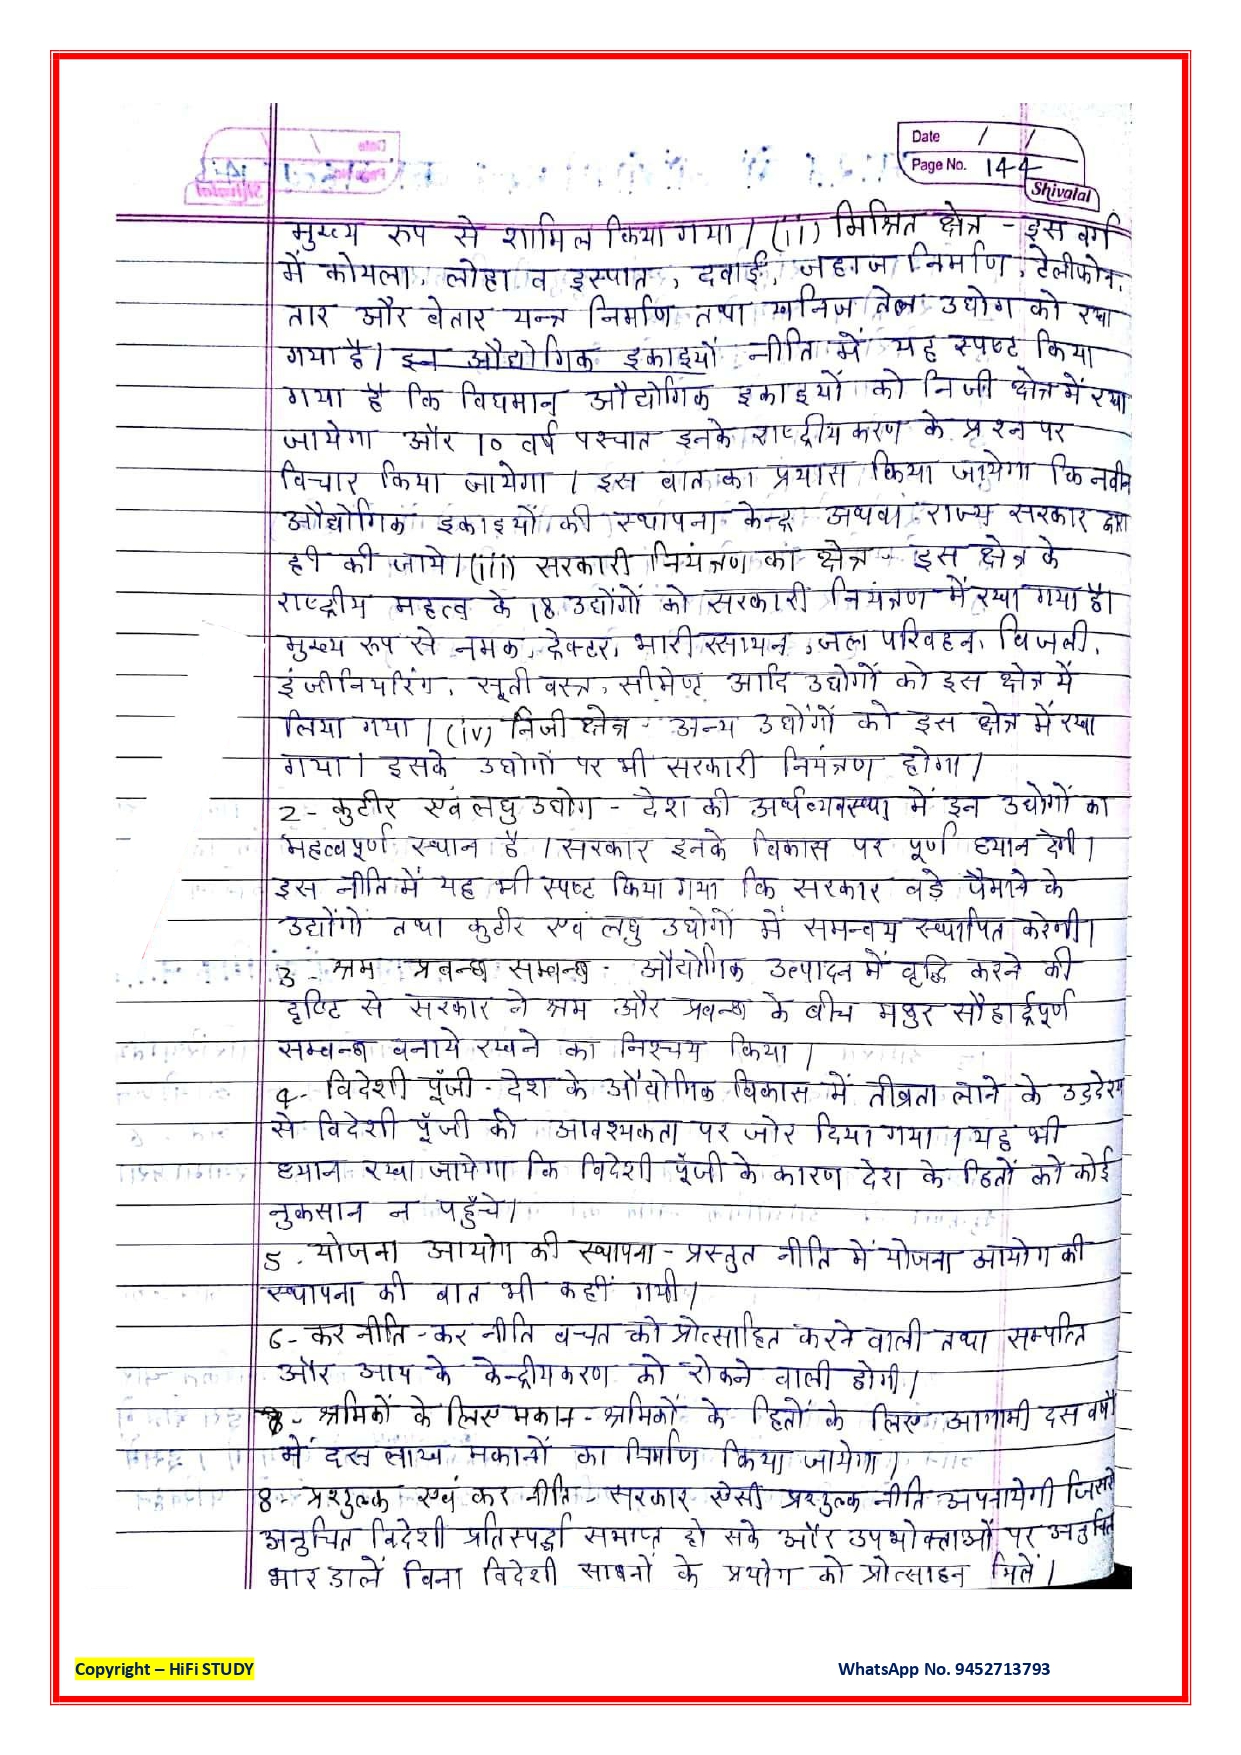 Date / /
Page No. 144
Shivalal
मुख्य रुप से शामिल किया गया। (ii) मिश्रित क्षेत्र - इस वर्ग
में कोयला, लोहा व इस्पात, दवाई, जहाज निर्माण, टेलीफोन,
तार और बेतार यन्त्र निर्माण तथा खनिज तेल उद्योग को रखा
गया है। इन औद्योगिक इकाइयों नीति में यह स्पष्ट किया
गया है कि विद्यमान औद्योगिक इकाइयों को निजी क्षेत्र में रखा
जायेगा और 10 वर्ष पश्चात इनके राष्ट्रीयकरण के प्रश्न पर
विचार किया जायेगा। इस बात का प्रयास किया जायेगा कि नवीन
औद्योगिक इकाइयों की स्थापना केन्द्र अथवा राज्य सरकार द्वारा
ही की जाये। (iii) सरकारी नियंत्रण का क्षेत्र - इस क्षेत्र के
राष्ट्रीय महत्व के 18 उद्योगों को सरकारी नियंत्रण में रखा गया है।
मुख्य रुप से नमक, ट्रेक्टर, भारी रसायन, जल परिवहन, बिजली,
इंजीनियरिंग, सूती वस्त्र, सीमेण्ट आदि उद्योगों को इस क्षेत्र में
लिया गया। (iv) निजी क्षेत्र - अन्य उद्योगों को इस क्षेत्र में रखा
गया। इसके उद्योगों पर भी सरकारी नियंत्रण होगा।
2- कुटीर एवं लघु उद्योग - देश की अर्थव्यवस्था में इन उद्योगों का
महत्वपूर्ण स्थान है। सरकार इनके विकास पर पूर्ण ध्यान देगी।
इस नीति में यह भी स्पष्ट किया गया कि सरकार बड़े पैमाने के
उद्योगों तथा कुटीर एवं लघु उद्योगों में समन्वय स्थापित करेगी।
3 - श्रम प्रबन्ध सम्बन्ध - औद्योगिक उत्पादन में वृद्धि करने की
दृष्टि से सरकार ने श्रम और प्रबन्ध के बीच मधुर सौहार्द्रपूर्ण
सम्बन्ध बनाये रखने का निश्चय किया।
4- विदेशी पूँजी - देश के औद्योगिक विकास में तीव्रता लाने के उद्देश्य
से विदेशी पूँजी की आवश्यकता पर जोर दिया गया। यह भी
ध्यान रखा जायेगा कि विदेशी पूँजी के कारण देश के हितों को कोई
नुकसान न पहुँचे।
5 - योजना आयोग की स्थापना - प्रस्तुत नीति में योजना आयोग की
स्थापना की बात भी कहीं गयी।
6- कर नीति - कर नीति बचत को प्रोत्साहित करने वाली तथा सम्पत्ति
और आय के केन्द्रीयकरण को रोकने वाली होगी।
7 - श्रमिकों के लिए मकान - श्रमिकों के हितों के लिए आगामी दस वर्षों
में दस लाख मकानों का निर्माण किया जायेगा।
8- प्रशुल्क एवं कर नीति - सरकार ऐसी प्रशुल्क नीति अपनायेगी जिससे
अनुचित विदेशी प्रतिस्पर्द्धा समाप्त हो सके और उपभोक्ताओं पर अनुचित
भार डालें बिना विदेशी साधनों के प्रयोग को प्रोत्साहन मिलें।
Copyright – HiFi STUDY
WhatsApp No. 9452713793